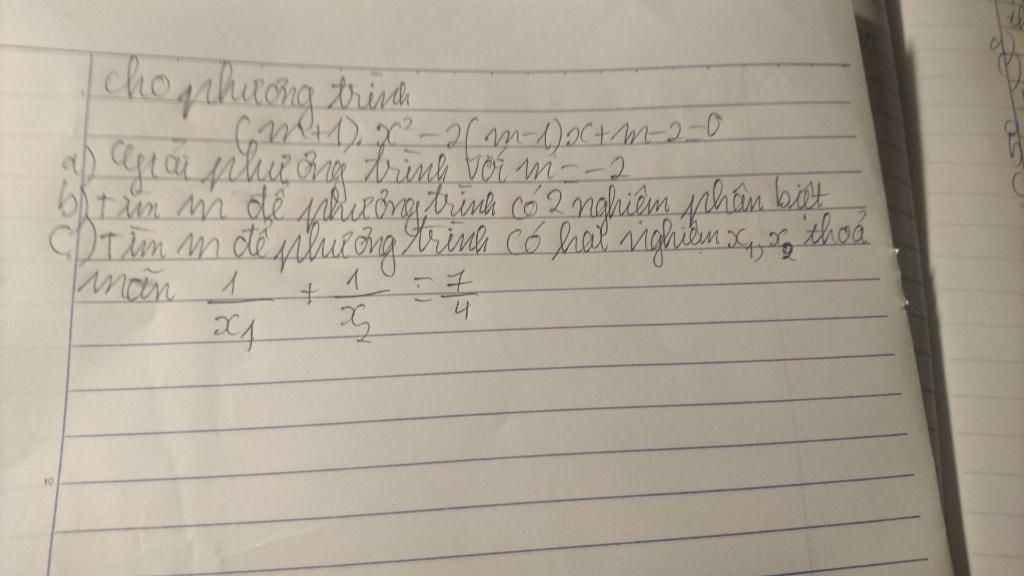 cho phương trình
(m+1).x²-2(m-1)x+m-2=0
a) Giải phương trình với m=-2
b) tìm m để phương trình có 2 nghiệm phân biệt
c) tìm m để phương trình có hai nghiệm x₁, x₂ thoả
mãn 1/x₁ + 1/x₂ = 7/4
10